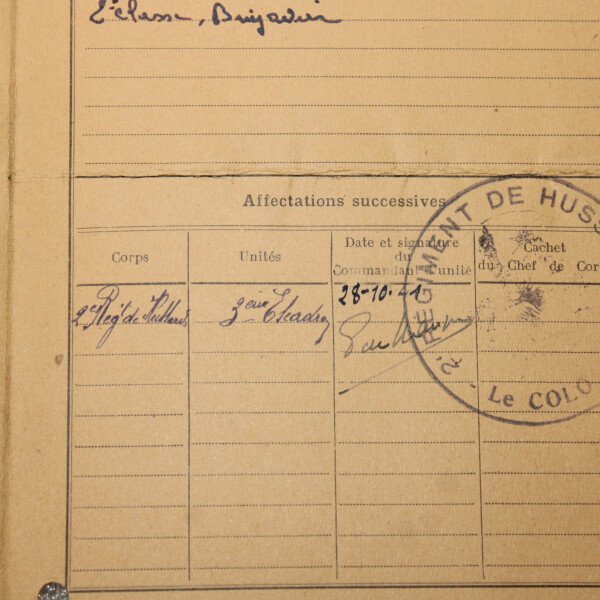 2e classe, Brigadier
Affectations successives
Corps
Unités
Date et signature
du
Commandant unité
Cachet
du Chef de Cor
2e Regt de Hussards
3ème Escadron
28-10-41
2e RÉGIMENT DE HUSS
Le COLO